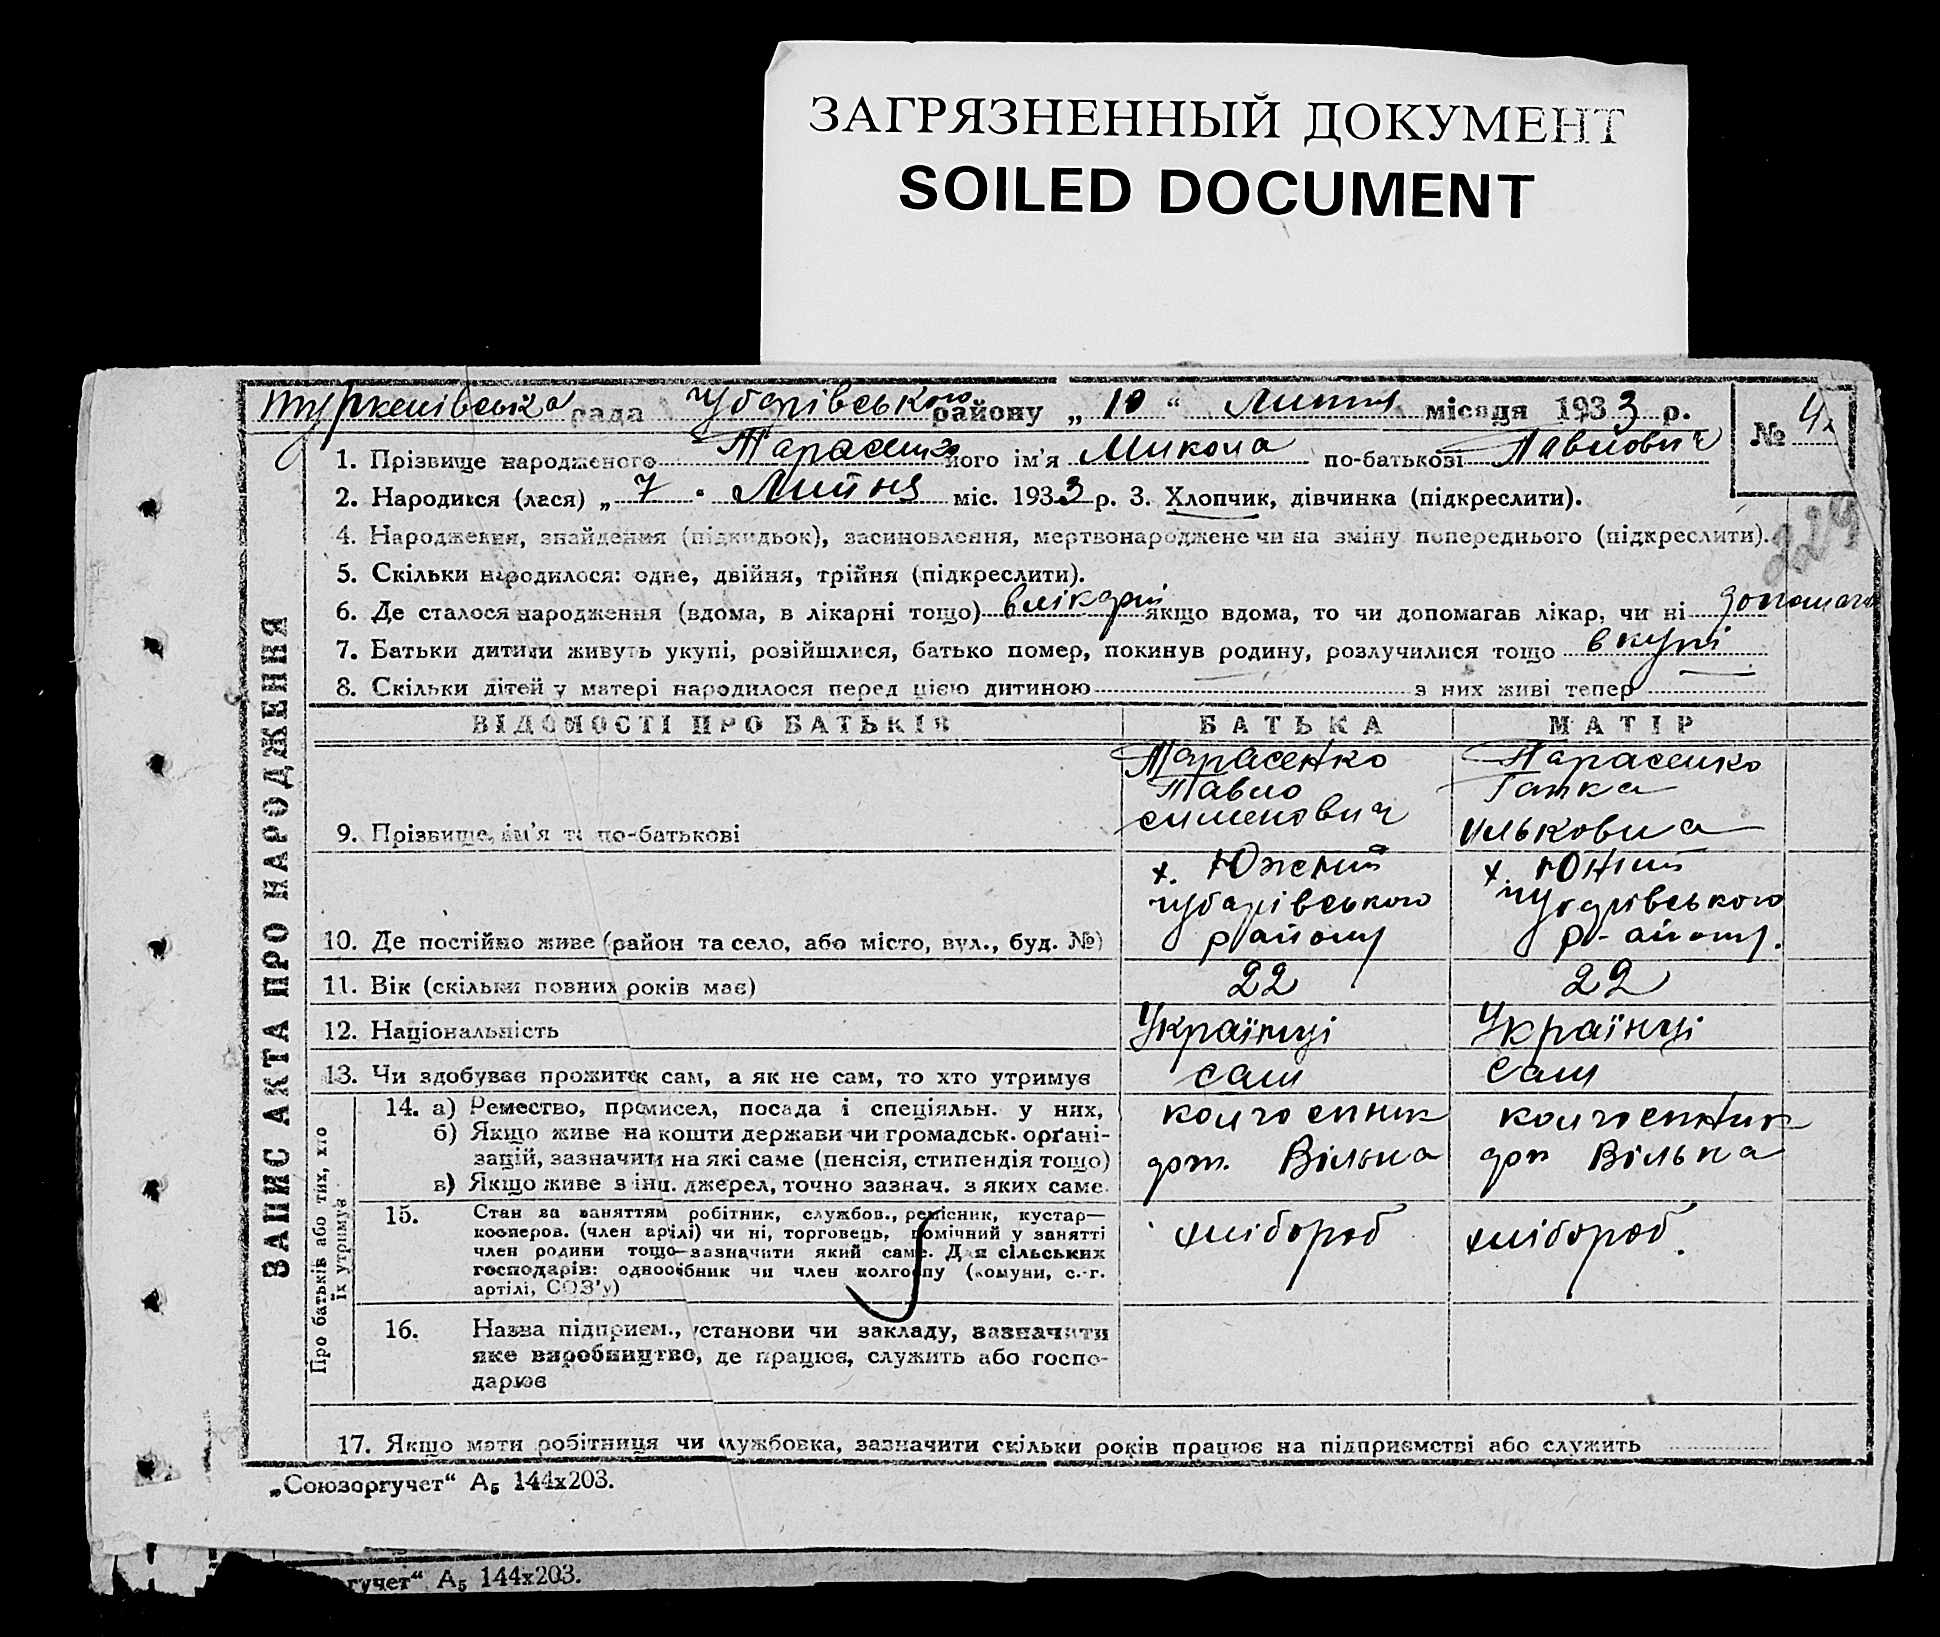 ЗАГРЯЗНЕННЫЙ ДОКУМЕНТ
SOILED DOCUMENT
рада Чубарівського району „ 10 “ Липня місяця 1933 р. №
1. Прізвище народженого Тарасенко його ім’я Микола по-батькові Павлович
224
2. Народився (лася) „ 7 “ Липня міс. 1933 р. 3. Хлопчик, дівчинка (підкреслити).
4. Народження, знайдення (підкидьок), засиновлення, мертвонароджене чи на зміну попереднього (підкреслити).
5. Скільки народилося: одне, двійня, трійня (підкреслити).
6. Де сталося народження (вдома, в лікарні тощо) в лікарні якщо вдома, то чи допомагав лікар, чи ні
7. Батьки дитини живуть укупі, розійшлися, батько помер, покинув родину, розлучилися тощо вкупі
8. Скільки дітей у матері народилося перед цією дитиною з них живі тепер
ЗАПИС АКТА ПРО НАРОДЖЕННЯ
ВІДОМОСТІ ПРО БАТЬКІВ БАТЬКА МАТІР
9. Прізвище, ім’я та по-батькові
Тарасенко
Павло
Семенович
Тарасенко
Ганка
Ильковна
10. Де постійно живе (район та село, або місто, вул., буд. №)
х. Южний
Чубарівського
району
х. Южний
Чубарівського
р-айону.
11. Вік (скільки повних років має) 22 22
12. Національність Українці Українці
13. Чи здобуває прожиток сам, а як не сам, то хто утримує сам сам
Про батьків або тих, хто
їх утримує
14. а) Ремество, промисел, посада і спеціяльн. у них,
б) Якщо живе на кошти держави чи громадськ. орґані-
зацій, зазначити на які саме (пенсія, стипендія тощо)
в) Якщо живе з інш. джерел, точно зазнач. з яких саме.
колгоспник
арт. Вільна
колгоспник
арт Вільна
15. Стан за заняттям робітник, службов., ремісник, кустар—
кооперов. (член артілі) чи ні, торговець, помічний у занятті
член родини тощо—зазначити який саме. Для сільських
господарів: одноосібник чи член колгоспу (комуни, с.-г.
артілі, СОЗ’у)
хлібороб хлібороб.
16. Назва підприєм., установи чи закладу, зазначити
яке виробництво, де працює, служить або госпо-
дарює
17. Якщо мати робітниця чи службовка, зазначити скільки років працює на підприємстві або служить
„Союзоргучет“ А₅ 144х203.
ргучет“ А₅ 144х203.